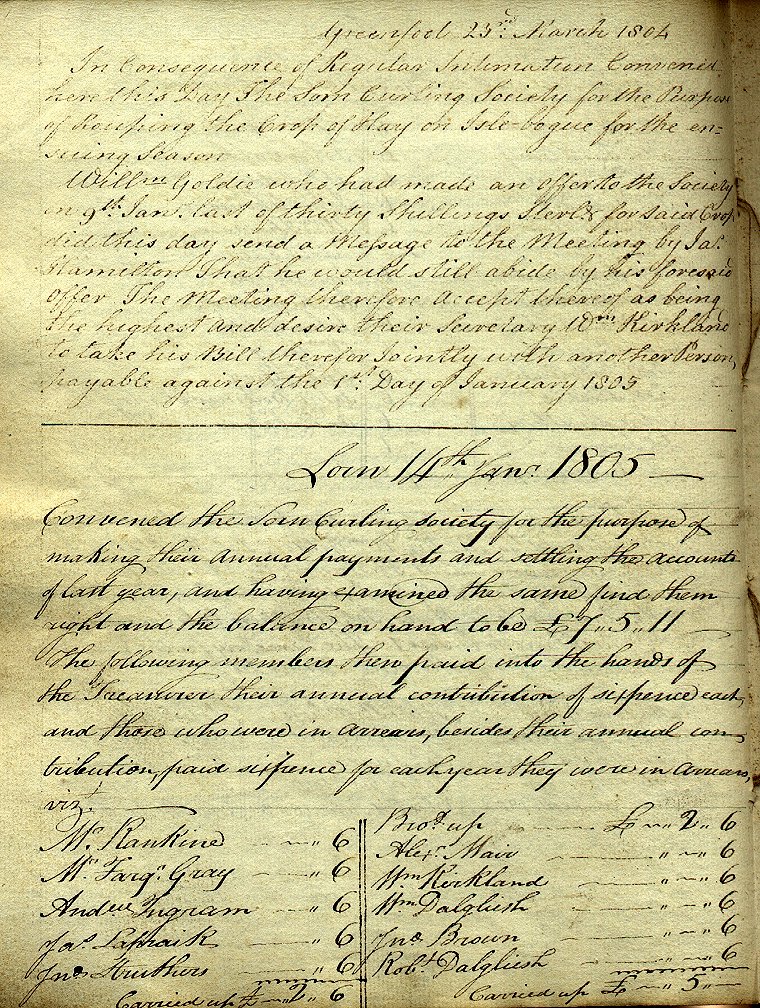 Greenfoot 23rd. March 1804
In Consequence of Regular Intimation Convened
here this Day The Sorn Curling Society for the Purpose
of Rouping the Crop of Hay on Isle-bogue for the en=
suing Season
Willm Goldie who had made an offer to the Society
on 9th. Janr. last of thirty Shillings Sterlg for said Crop
did this day send a Message to the Meeting by Jas.
Hamilton That he would still abide by his foresaid
Offer The Meeting therefore accept thereof as being
the highest and desire their Secretary Wm Kirkland
to take his Bill therefor Jointly with another Person,
payable against the 1st. Day of January 1805
Sorn 14th Janr. 1805 —
Convened the Sorn Curling society for the purpose of
making their annual payments and settling the accounts
of last year, and having examined the same find them
right and the balance on hand to be £7,,5,,11 —
The following members then paid into the hands of
the Treasurer their annual contribution of sixpence each,
and those who were in arrears, besides their annual con=
tribution, paid sixpence for each year they were in arrears,
vizt. —
Mr. Rankine — ,, 6
Mr. Farqr. Gray — ,, 6
Andrw Ingram — ,, 6
Jas. Lapraik — ,, 6
Jno. Struthers ,, 6
Carried up £ — 2 ,, 6
Brot. up — £ ,, ~ 2 ,, 6
Alexr. Mair — ,, ~ ,, 6
Wm Kirkland — ,, ~ ,, 6
Wm. Dalgliesh — ,, ~ ,, 6
Jno. Brown — ,, ~ ,, 6
Robt. Dalgliesh — ,, ~ ,, 6
Carried up £ — 5 —